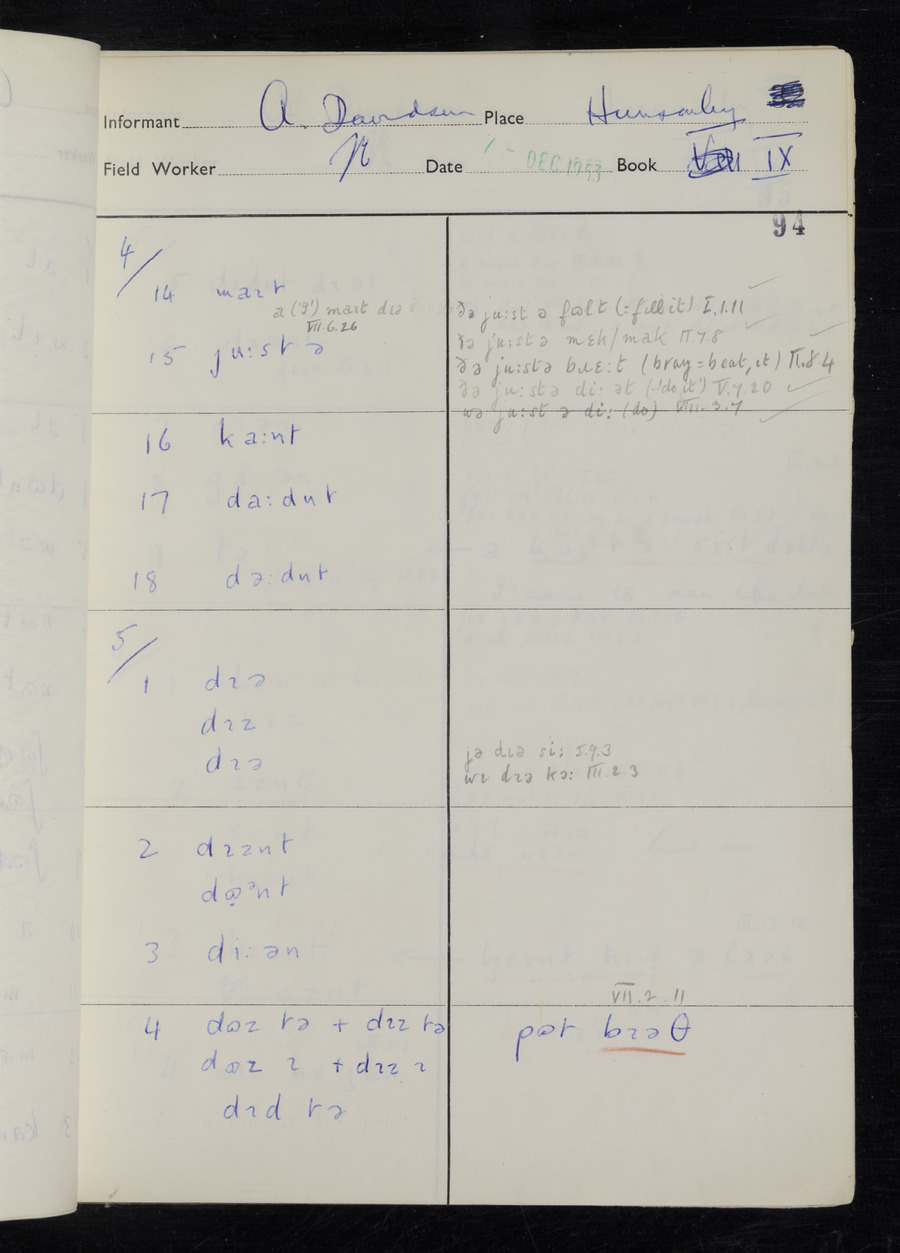 Informant A. Davidson Place
Field Worker Date DEC 1953 Book IX
94
4/
14 maɪt
a ('9') maɪt dɪə
VII.6.26
ðə ju:st ə fœlt (=fill it) I.1.11
15 ju:stə
ðə ju:stə mɛk/mak II.7.8
ðə ju:stə bɹɛ:t (bray = beat, it) II.8.4
ðə ju:stə di: ət (='do it') V.7.20
wə ju:st ə di: (do) VIII.3.7
16 ka:nt
17 da:dnt
18 də:dnt
5/
1 dɪə
dɪz
dɪə
jə dɪə si: I.9.3
wɪ dɪə kə: III.2.3
2 dɪznt
dœənt
3 di:ən
VII.2.11
4 dœz tə + dɪz tə
pœt bɪəθ
dœz ɪ + dɪz ɪ
dɪd tə